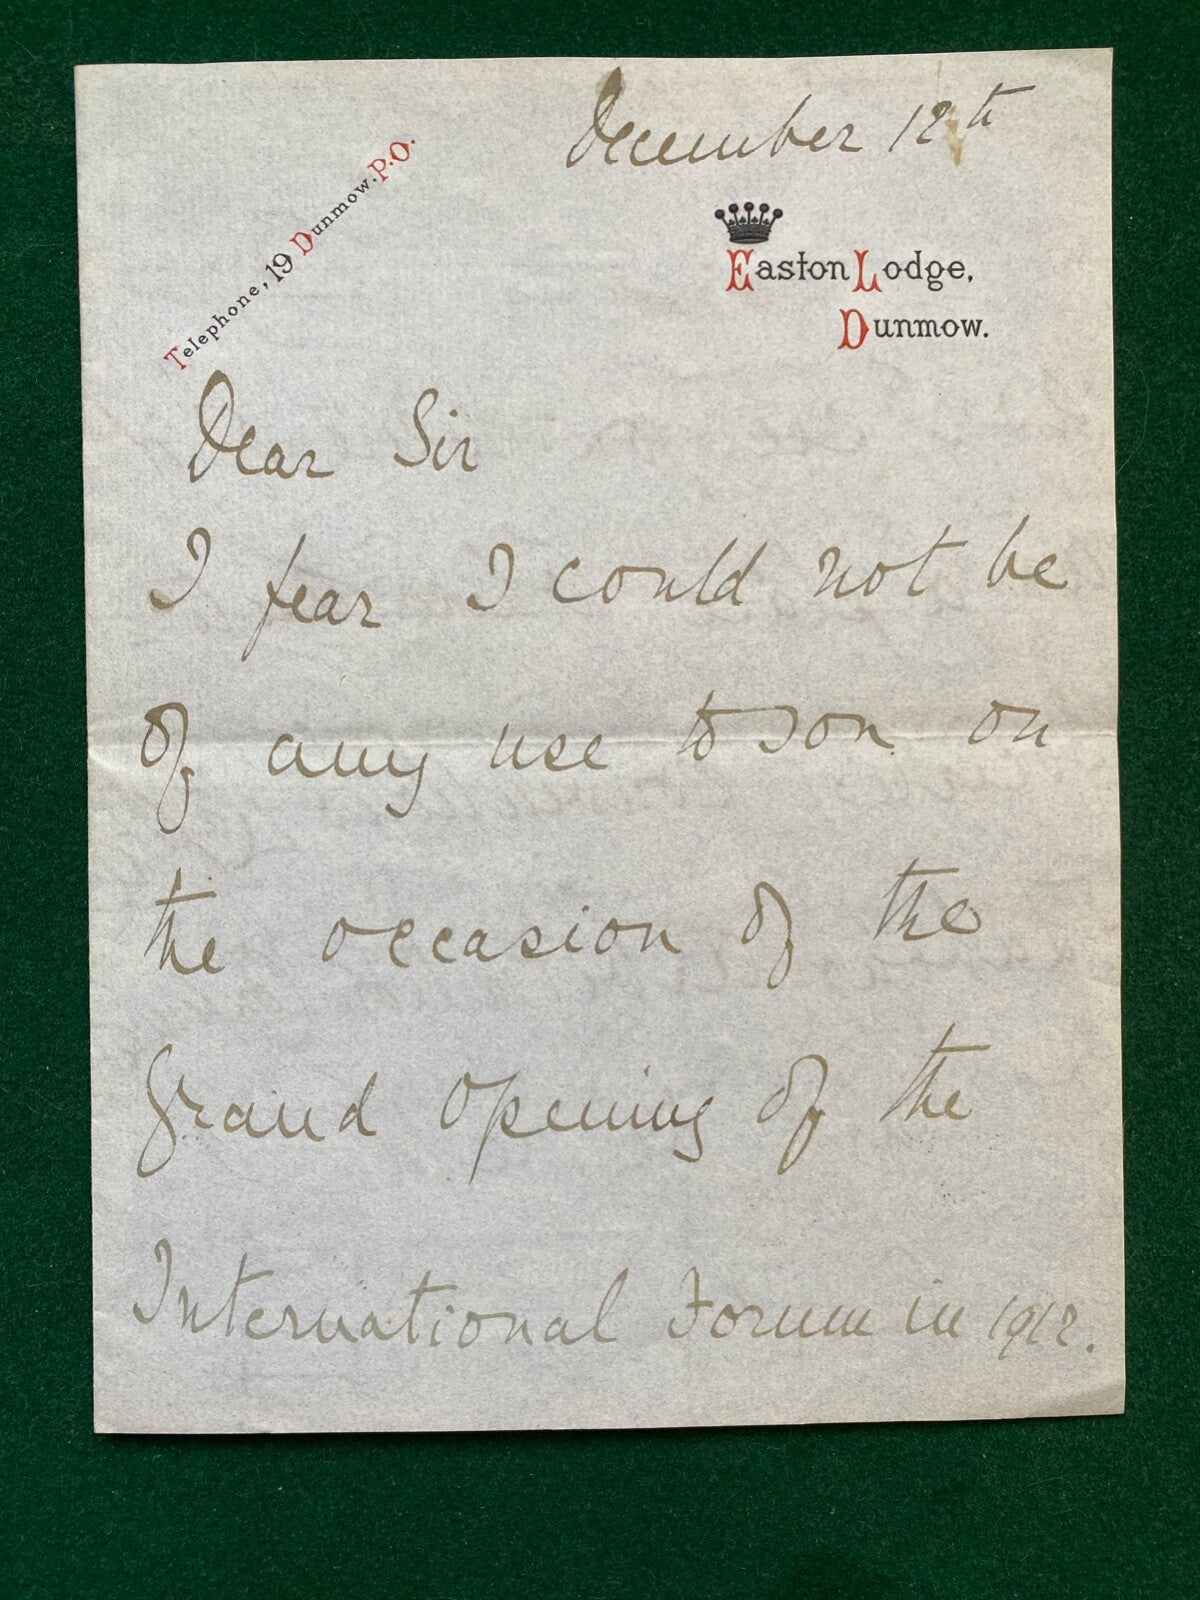 December 12th
Telephone, 19 Dunmow. P.O.
Easton Lodge,
Dunmow.
Dear Sir
I fear I could not be
of any use to you on
the occasion of the
Grand Opening of the
International Forum in 1912.